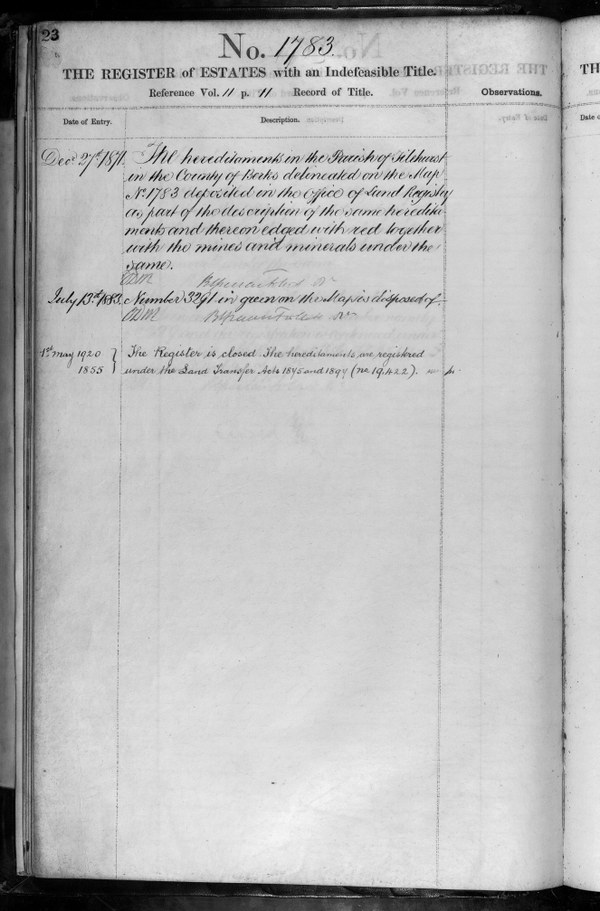 23
No. 1783.
THE REGISTER of ESTATES with an Indefeasible Title.
Reference Vol. 11 p. 11 Record of Title.
Observations.
Date of Entry.
Description.
Decr 27th 1871. The hereditaments in the Parish of Tilehurst
in the County of Berks delineated on the Map
No. 1783 deposited in the Office of Land Registry
as part of the description of the same heredita-
ments and thereon edged with red together
with the mines and minerals under the
same.
July 13th 1883. Number 3291 in green on the Map is disposed of.
1st May 1920 The Register is closed. The hereditaments are registered
1855 under the Land Transfer Acts 1875 and 1897 (no 19.422).
TH
Date o